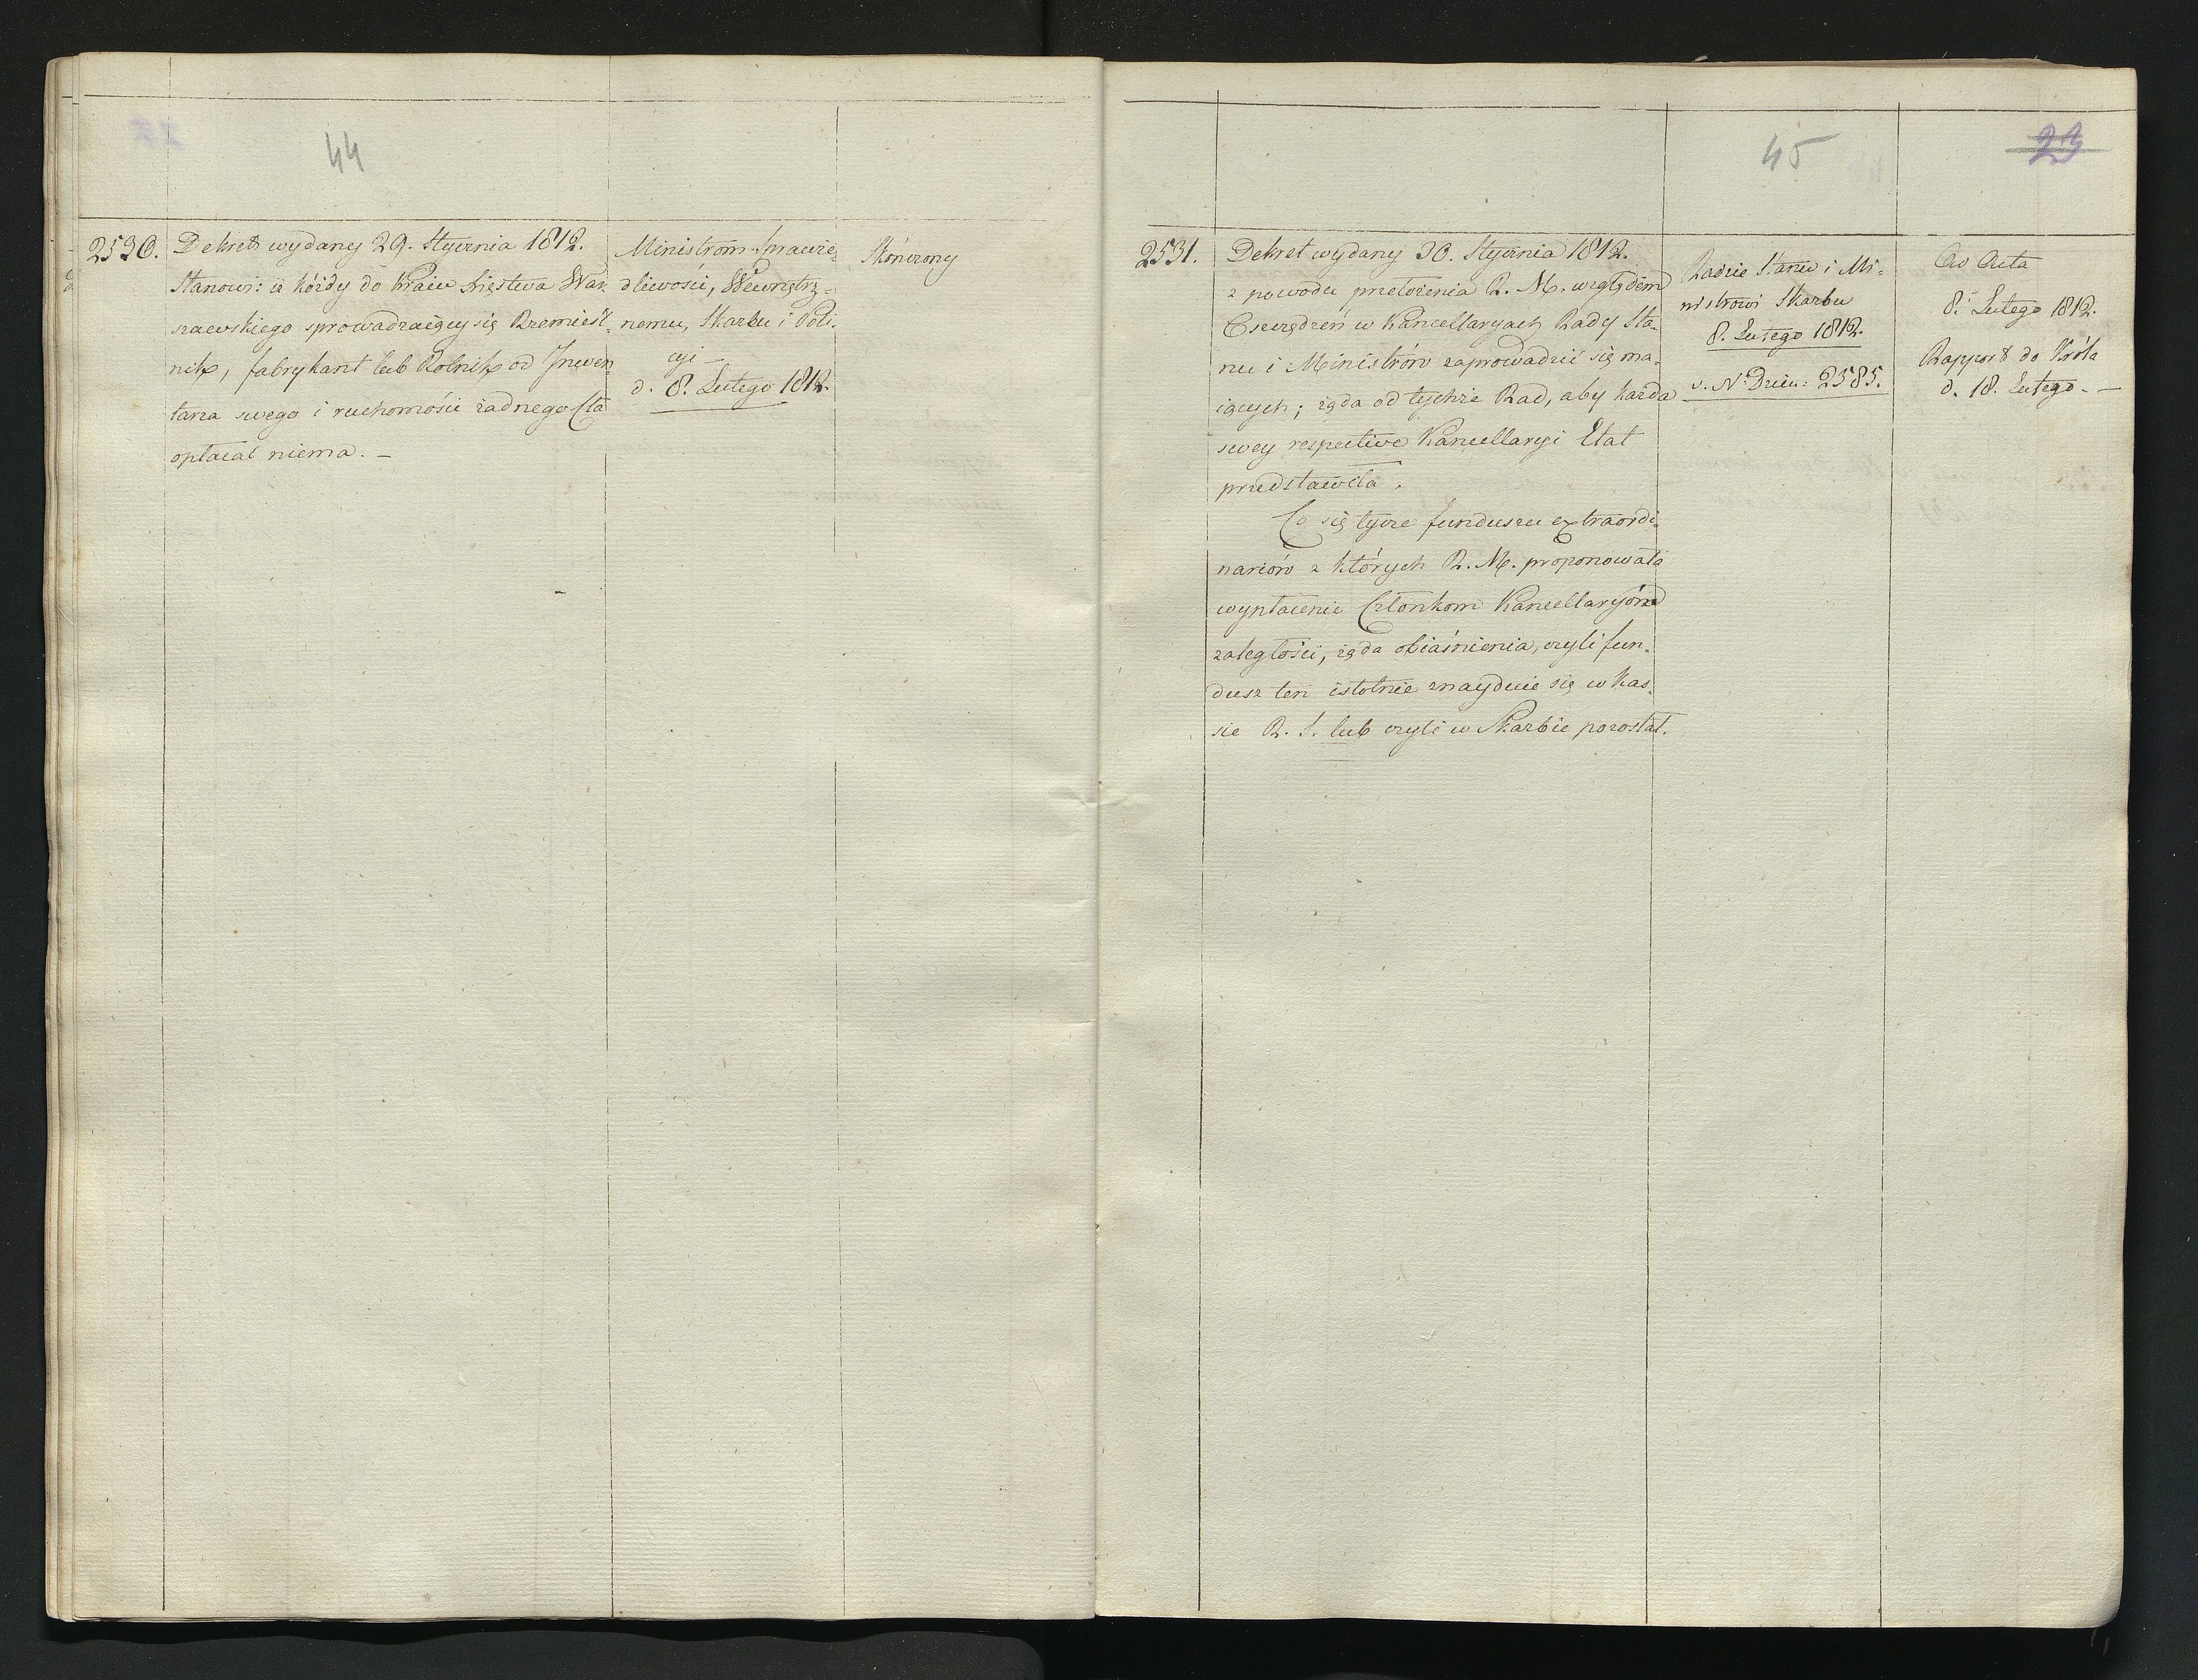 44
2530.
Dekret wydany 29. Stycznia 1812.
Stanowi: iż każdy do Kraiu Xięstwa War-
szawskiego sprowadzaiący się Rzemieśl-
nik, fabrykant lub Rolnik od Inwen-
tarza swego i ruchomości żadnego Cła
opłacać niema. —
Ministrom Sprawie-
dliwości, Wewnętrz-
nemu, Skarbu i Poli-
cyi —
d. 8. Lutego 1812.
Skończony
45
23
2531.
Dekret wydany 30. Stycznia 1812.
z powodu przełożenia R. M. względem
Oszczędzeń w Kancellaryach Rady Sta-
nu i Ministrów zaprowadzić się ma-
iących; żąda od tychże Rad, aby każda
swey respective Kancellaryi Etat
przedstawiła.
Co się tycze funduszu extraordi-
nariów z których R. M. proponowała
wypłacenie Członkom Kancellaryów
zaległości, żąda obiaśnienia, czyli fun-
dusz ten istotnie znayduie się w Kas-
sie R. S. lub czyli w Skarbie pozostał.
Radzie Stanu i Mi-
nistrowi Skarbu
8. Lutego 1812.
v. Nr Dzien: 2585.
Ad Acta
8. Lutego 1812.
Rapport do Króla
d. 18. Lutego. —